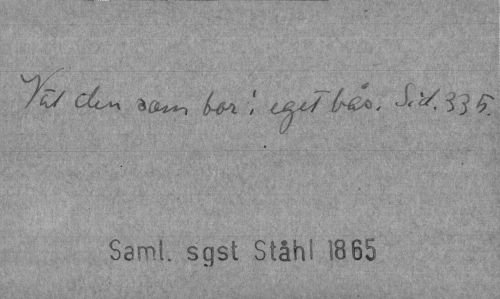 Väl den som bor i eget bås. Sid. 335.
Saml. sgst Ståhl 1865